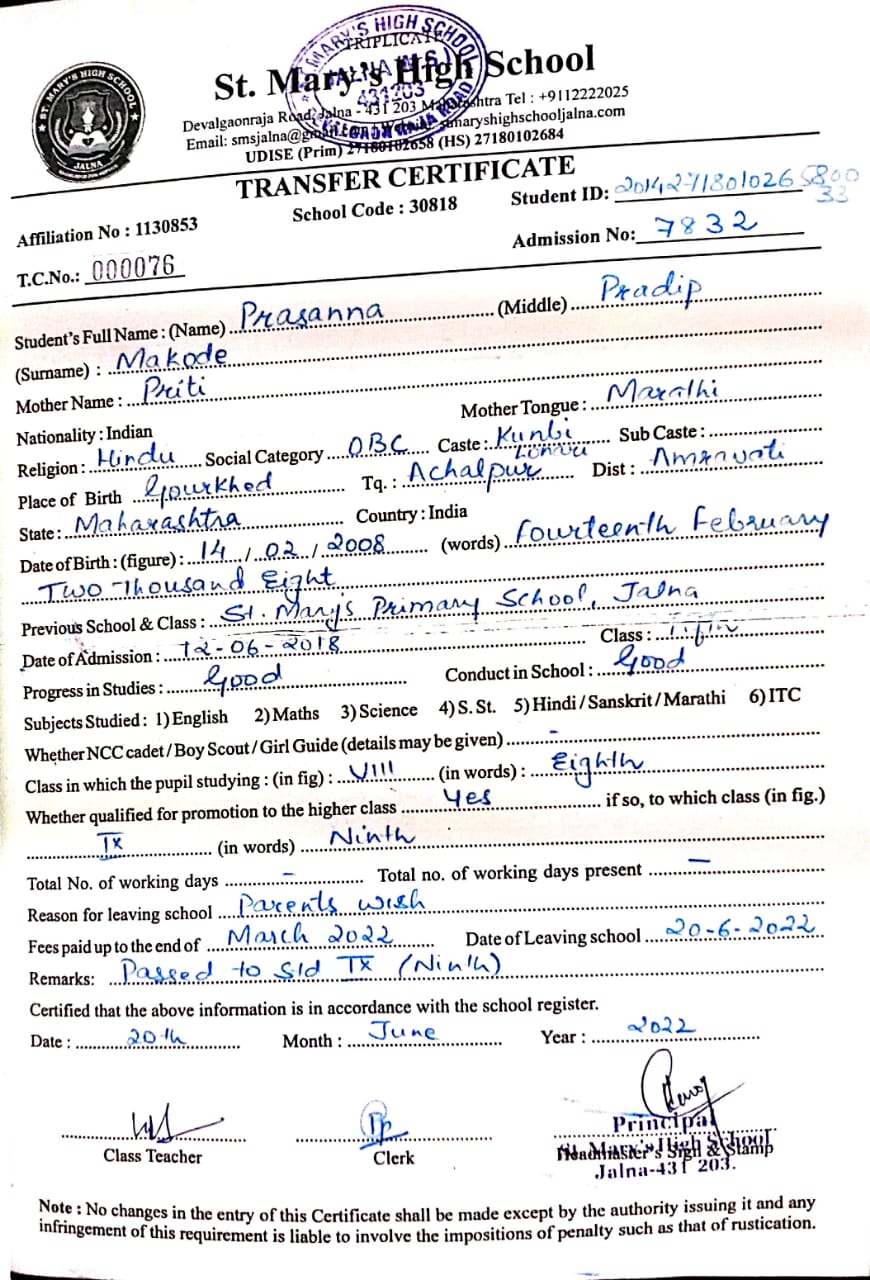 ST. MARY'S HIGH SCHOOL
JALNA
MARY'S HIGH SCHOOL
JALNA (M.S.)
431203
TRIPLICATE
St. Mary's High School
Devalgaonraja Road, Jalna - 431 203 Maharashtra Tel : +9112222025
Email: smsjalna@ maryshighschooljalna.com
UDISE (Prim) 27180102658 (HS) 27180102684
TRANSFER CERTIFICATE
Affiliation No : 1130853 School Code : 30818 Student ID: 20142718010265800
33
T.C.No.: 000076 Admission No: 7832
Student's Full Name : (Name) Prasanna (Middle) Pradip
(Surname) : Makode
Mother Name : Priti
Nationality : Indian Mother Tongue : Marathi
Religion : Hindu Social Category OBC Caste : Kunbi Sub Caste :
Place of Birth Gourkhed Tq. : Achalpur Dist : Amravati
State : Maharashtra Country : India
Date of Birth : (figure) : 14 / 02 / 2008 (words) Fourteenth February
Two Thousand Eight
Previous School & Class : St. Mary's Primary School, Jalna
Date of Admission : 12-06-2018 Class :
Progress in Studies : Good Conduct in School : Good
Subjects Studied : 1) English 2) Maths 3) Science 4) S. St. 5) Hindi / Sanskrit / Marathi 6) ITC
Whether NCC cadet / Boy Scout / Girl Guide (details may be given) -
Class in which the pupil studying : (in fig) : VIII (in words) : Eighth
Whether qualified for promotion to the higher class Yes if so, to which class (in fig.)
IX (in words) Ninth
Total No. of working days - Total no. of working days present -
Reason for leaving school Parents wish
Fees paid up to the end of March 2022 Date of Leaving school 20-6-2022
Remarks: Passed to Std IX (Ninth)
Certified that the above information is in accordance with the school register.
Date : 20th Month : June Year : 2022
Principal
Class Teacher Clerk Headmaster's Sign & Stamp
St. Mary's High School
Jalna-431 203.
Note : No changes in the entry of this Certificate shall be made except by the authority issuing it and any
infringement of this requirement is liable to involve the impositions of penalty such as that of rustication.